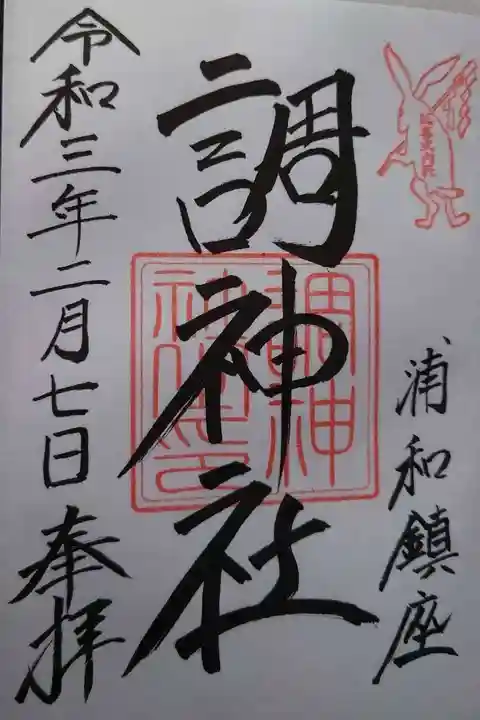 浦和鎮座
調神社
調神社之印
令和三年二月七日奉拝